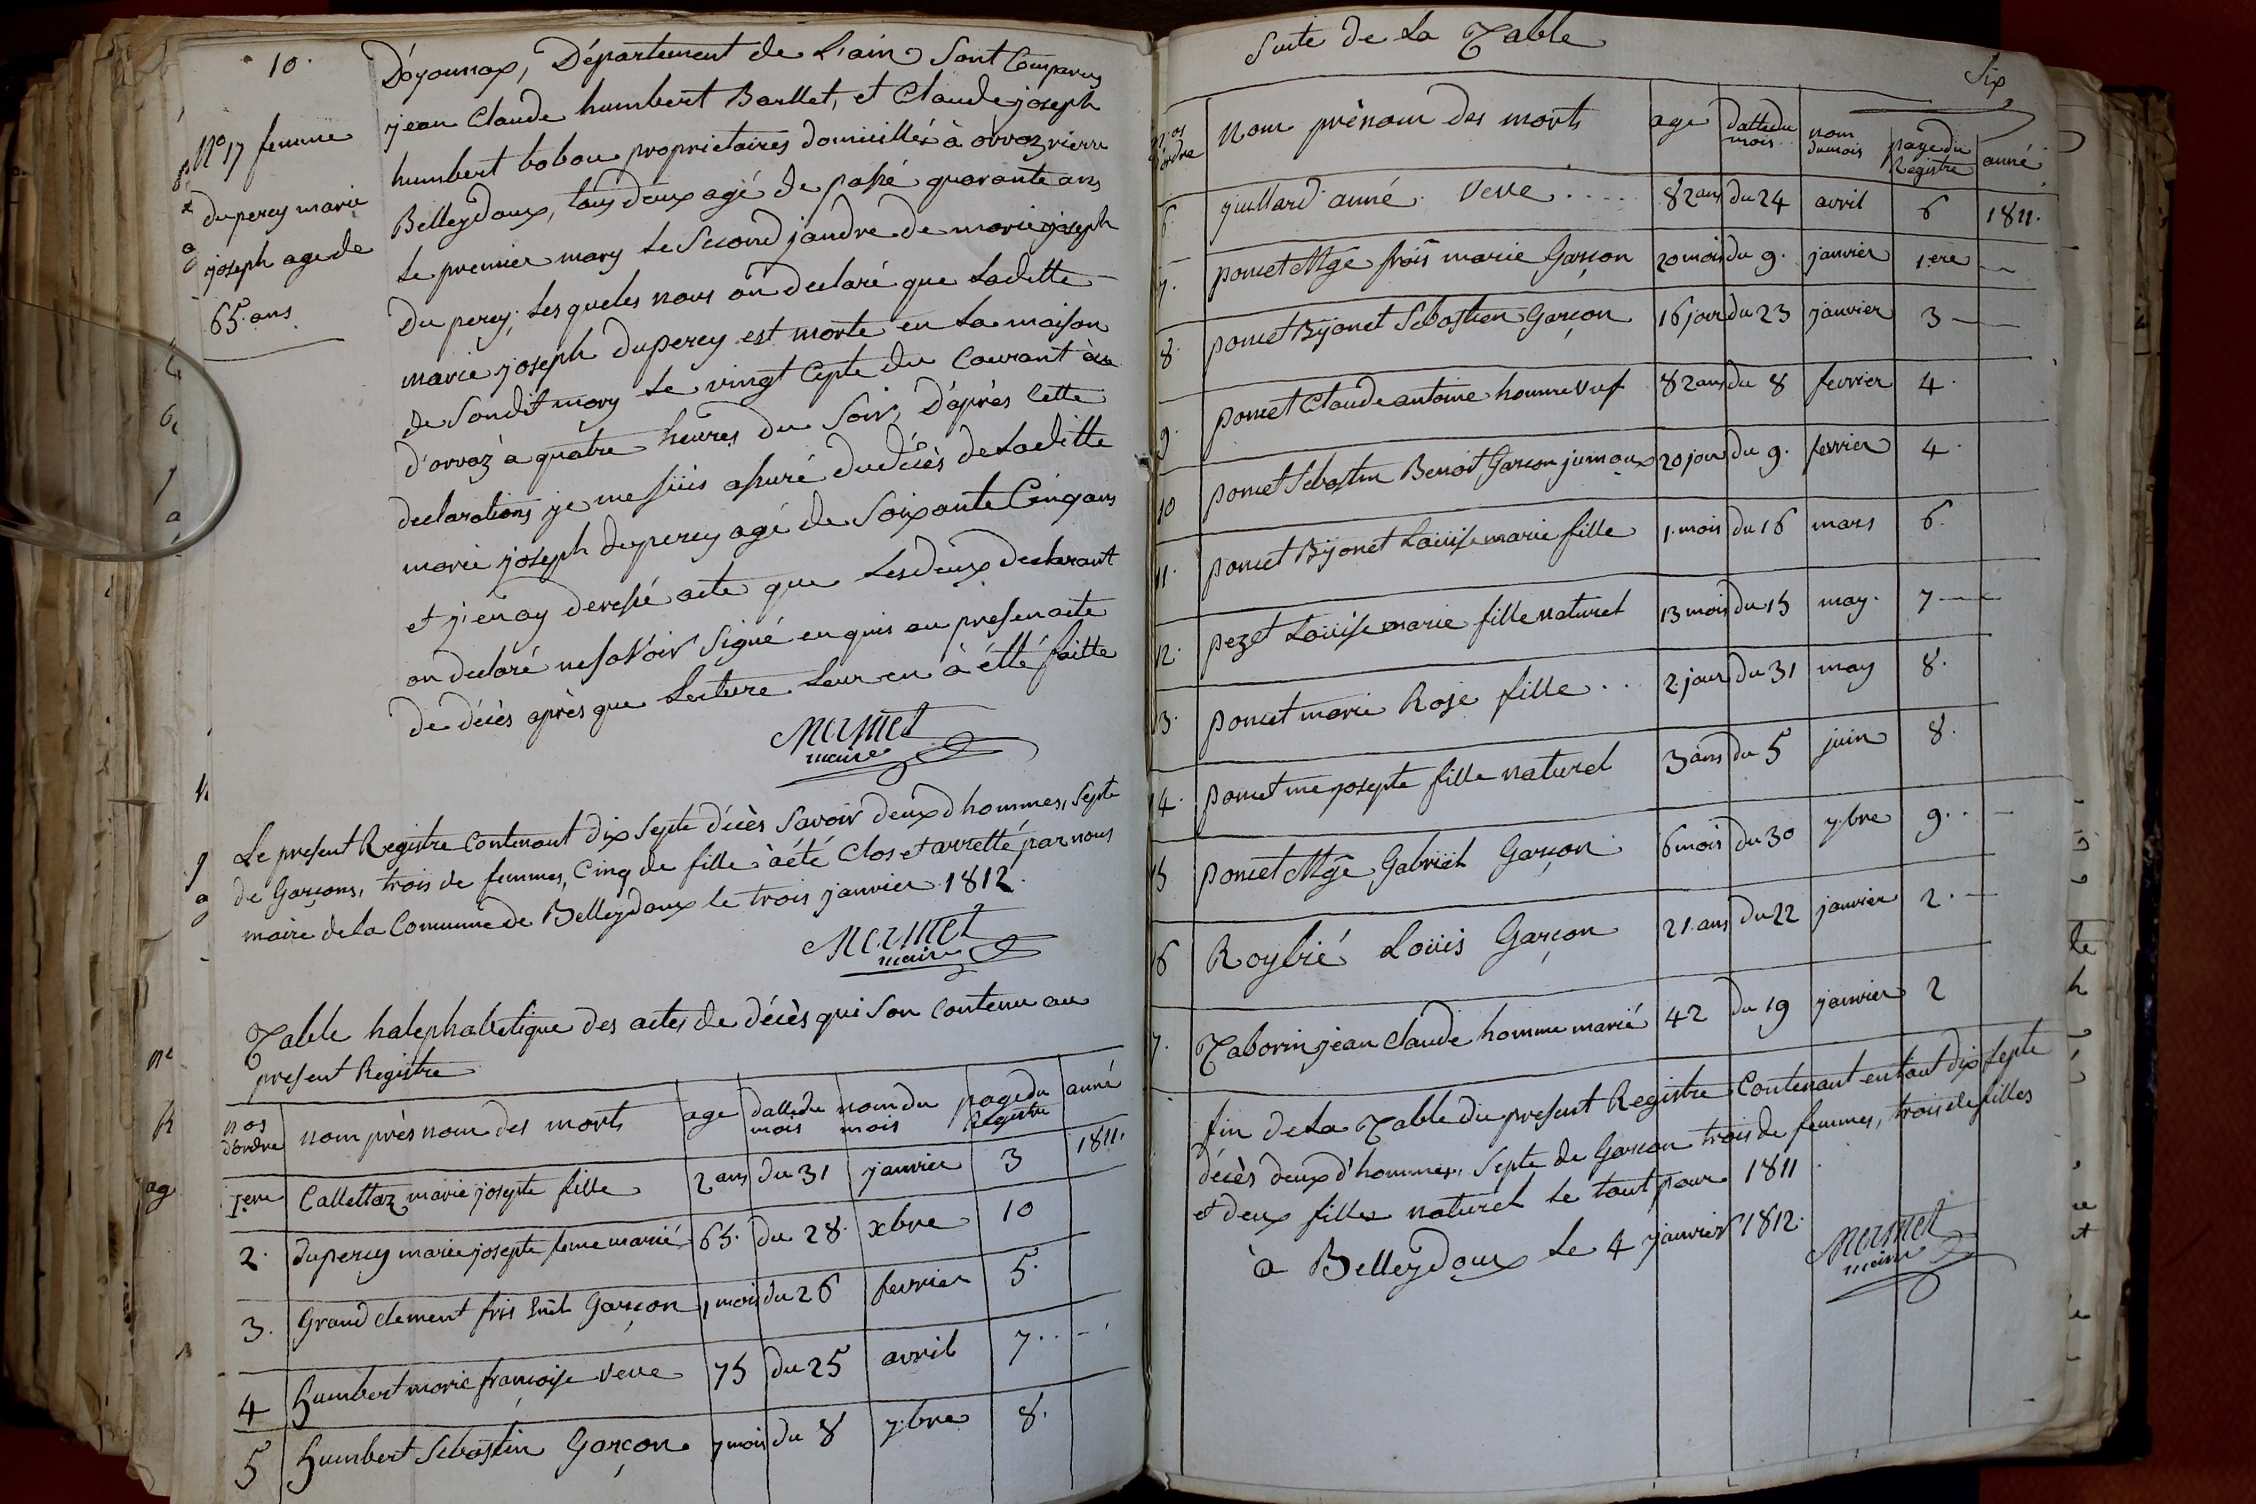 10.
No 17 femme
du percy marie
joseph age de
65. ans
D'oyonnax, Département de L'ain Sont Comparus
jean Claude humbert Barllet, et Claude joseph
humbert bobou proprietaires domicillés à orvoz rierre
Belleydoux, tous deux agé de passé quarante ans
Le premier mary Le Second jandre de marie joseph
Du percy; Les queles nous on declaré que Laditte
marie joseph Dupercy est morte en La maison
de Sondit mary Le vingt Cepte du Courant àu
d'orvoz à quatre heures du Soir, D'après Cette
declarations je me suis assuré du décès de Laditte
marie joseph dupercy agé de Soixante Cinq ans
et j'en ay dressé acte que Les deux declarant
on declaré ne savoir Signé enquis au present acte
de décès après que Lecture Leur en à étté faitte
Mermet
maire
Le present Registre Contenant dix Septe décès Savoir deux d hommes, Septe
de Garçons, trois de femmes, Cinq de fille à été Clos et arretté par nous
maire de la Commune de Belleydoux le trois janvier 1812.
Mermet
maire
Table halephabetique des actes de décès qui Son Contenu au
present Registre
nos d'ordre nom près nom des morts age datte du mois nom du mois page du Registre anné
1ere Callettaz marie josepte fille 2 ans du 31 janvier 3 1811.
2. dupercy marie josepte feme marié 65. du 28. xbre 10
3. Grand clement fris Garçon 1 mois du 26 fevrier 5.
4 humbert marie françoise veve 75 du 25 avril 7..
5 humbert Sebastin Garçon 7 mois du 8 7.bre 8.
Suite de La Table
Six
nos d'ordre Nom prènom des morts age datte du mois nom du mois page du Registre anné
6. juillard anné. veve ..... 82 ans du 24 avril 6 1811.
7. poncet Mge frois marie Garçon 20 mois du 9. janvier 1.ere
8. poncet Bijonet Sebastien Garçon 16 jour du 23 janvier 3
9. poncet Claude antoine homme vuf 82 ans du 8 fevrier 4.
10 poncet Sebastin Benoit Garçon jumaux 20 jour du 9. fevrier 4.
11. poncet Bijonet Loüise marie fille 1. mois du 16 mars 6.
12. pezet Loüise marie fille naturel 13 mois du 15 may. 7
13. poncet marie Rose fille .. 2. jour du 31 may 8.
14. poncet me josepte fille naturel 3 ans du 5 juin 8.
15 poncet Mge Gabriël Garçon 6 mois du 30 7.bre 9..
16 Roybié Loüis Garçon 21. ans du 22 janvier 2.
17. Taborin jean Claude homme marié 42 du 19 janvier 2
fin de La Table du present Registre Contenant en tout dix septe
décès deux d'hommes, Septe de Garçon trois de femmes, trois de filles
et deux filles naturel Le tout pour 1811
à Belleydoux Le 4 janvier 1812.
Mermet
maire